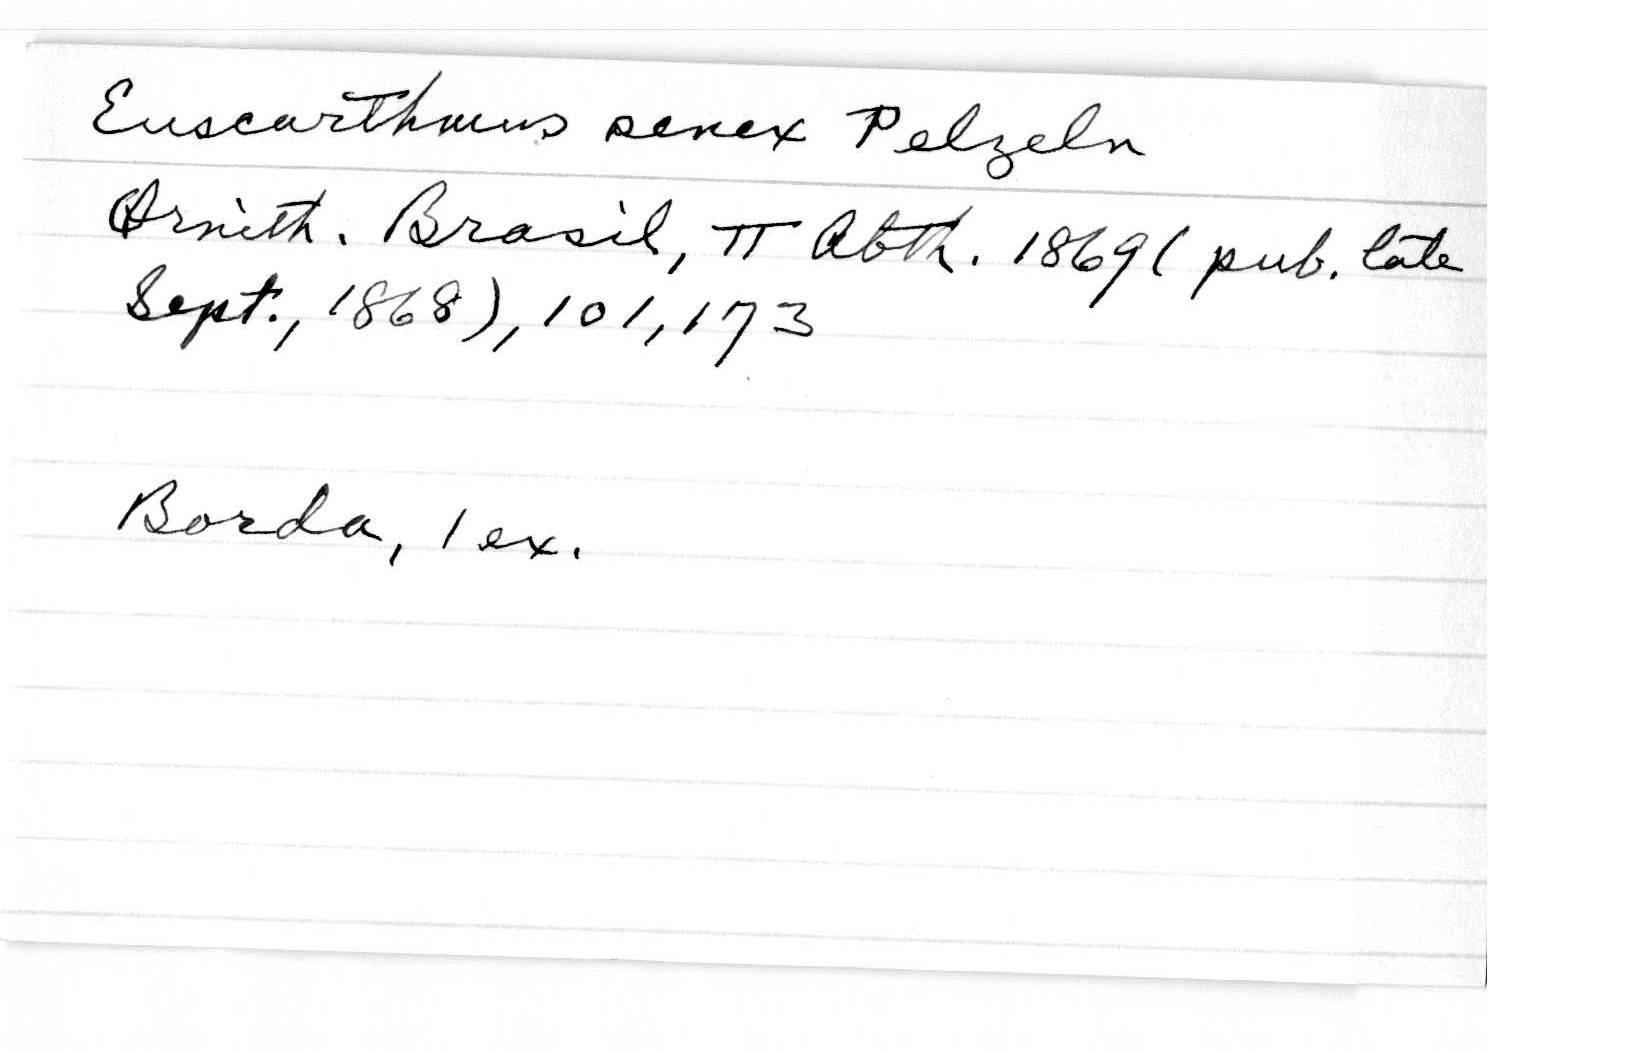 Euscarthmus senex Pelzeln
Ornith. Brasil, II Abth. 1869 (pub. late
Sept., 1868), 101, 173
Borda, 1 ex.